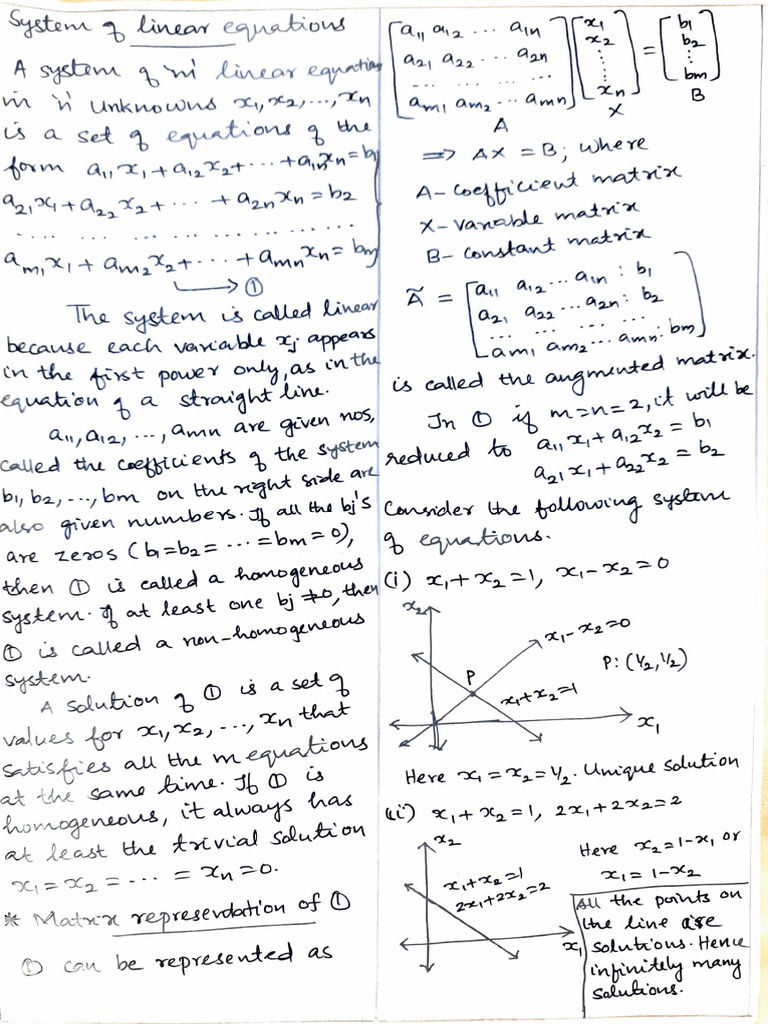 System of linear equations
A system of 'm' linear equations
in 'n' unknowns x₁, x₂, ..., xₙ
is a set of equations of the
form a₁₁x₁ + a₁₂x₂ + ... + a₁ₙxₙ = b₁
a₂₁x₁ + a₂₂x₂ + ... + a₂ₙxₙ = b₂
... ... ... ... ... ...
aₘ₁x₁ + aₘ₂x₂ + ... + aₘₙxₙ = bₘ
→ ①
The system is called linear
because each variable xⱼ appears
in the first power only, as in the
equation of a straight line.
a₁₁, a₁₂, ..., aₘₙ are given nos,
called the coefficients of the system
b₁, b₂, ..., bₘ on the right side are
also given numbers. If all the bⱼ's
are zeros (b₁ = b₂ = ... = bₘ = 0),
then ① is called a homogeneous
system. If at least one bⱼ ≠ 0, then
① is called a non-homogeneous
system.
A solution of ① is a set of
values for x₁, x₂, ..., xₙ that
satisfies all the m equations
at the same time. If ① is
homogeneous, it always has
at least the trivial solution
x₁ = x₂ = ... = xₙ = 0.
* Matrix representation of ①
① can be represented as
[a₁₁ a₁₂ ... a₁ₙ] [x₁] = [b₁]
[a₂₁ a₂₂ ... a₂ₙ] [x₂] [b₂]
[... ... ... ...] [⋮] [⋮]
[aₘ₁ aₘ₂ ... aₘₙ] [xₙ] [bₘ]
A X B
⇒ AX = B; where
A - coefficient matrix
X - variable matrix
B - constant matrix
Ã = [a₁₁ a₁₂ ... a₁ₙ : b₁]
[a₂₁ a₂₂ ... a₂ₙ : b₂]
[... ... ... ...]
[aₘ₁ aₘ₂ ... aₘₙ : bₘ]
is called the augmented matrix.
In ① if m = n = 2, it will be
reduced to a₁₁x₁ + a₁₂x₂ = b₁
a₂₁x₁ + a₂₂x₂ = b₂
Consider the following system
of equations.
(i) x₁ + x₂ = 1, x₁ - x₂ = 0
x₂
x₁ - x₂ = 0
P
P: (1/2, 1/2)
x₁ + x₂ = 1
x₁
Here x₁ = x₂ = 1/2. Unique solution
(ii) x₁ + x₂ = 1, 2x₁ + 2x₂ = 2
x₂
x₁ + x₂ = 1
2x₁ + 2x₂ = 2
x₁
Here x₂ = 1 - x₁ or
x₁ = 1 - x₂
All the points on
the line are
solutions. Hence
infinitely many
solutions.